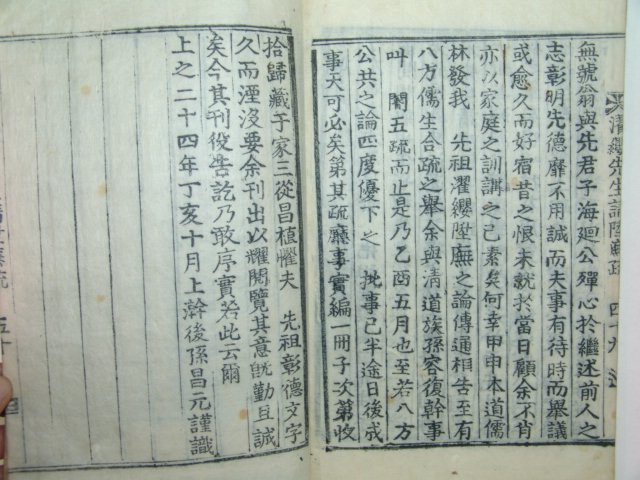 無號翁與先君子海廻公殫心於繼述前人之
志彰明先德靡不用誠而夫事有待時而舉議
或愈久而好宿昔之恨未就於當日顧余不肖
亦以家庭之訓講之已素矣何幸甲申本道儒
林發我 先祖濯纓陞廡之論傳通相告至有
八方儒生合疏之舉余與清道族孫容復幹事
叫 閽五疏而止是乃乙酉五月也至若八方
公共之論四度優下之 批事已半途日後成
事天可必矣第其疏廳事實編一冊子次第收
拾歸藏于家三從昌植懼夫 先祖彰德文字
久而湮沒要余刊出以耀閱覽其意旣勤且誠
矣今其刊役告訖乃敢序實若此云爾
上之二十四年丁亥十月上澣後孫昌元謹識